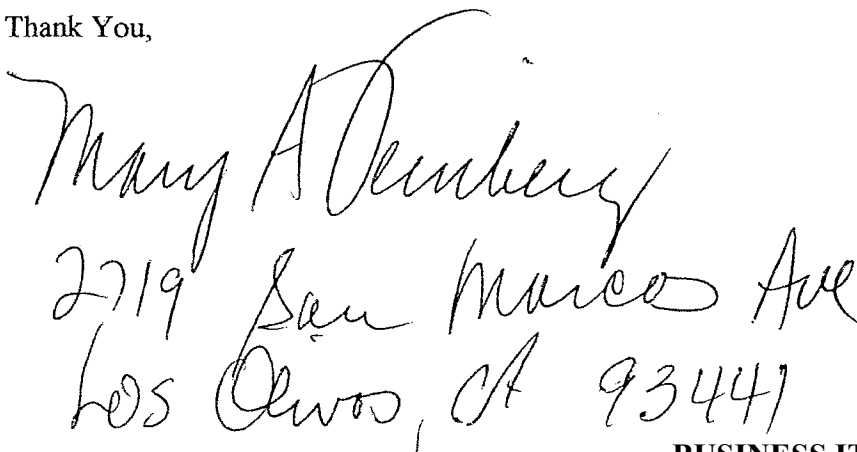 Thank You,
Mary A
2719 San Marcos Ave
Los Olivos, CA 93441
BUSINESS IT